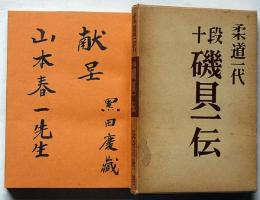 献呈
黒田慶蔵
山本春一先生
柔道一代
十段
磯貝一伝